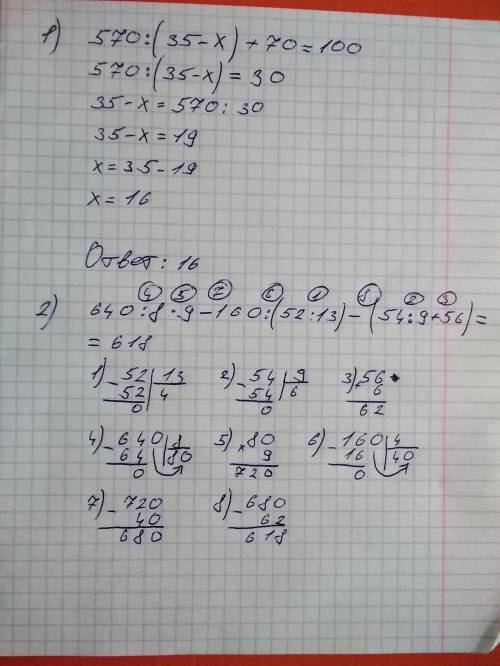 1) 570:(35-x)+70=100
570:(35-x)=30
35-x=570:30
35-x=19
x=35-19
x=16
Ответ: 16
4 5 7 6 1 8 2 3
2) 640:8·9-160:(52:13)-(54:9+56)=
=618
1) -52 | 13 2) -54 | 9 3) +56
52 | 4 54 | 6 6
0 0 62
4) -640 | 8 5) ×80 6) -160 | 4
64 | 80 9 16 | 40
0 720 0
7) -720 8) -680
40 62
680 618